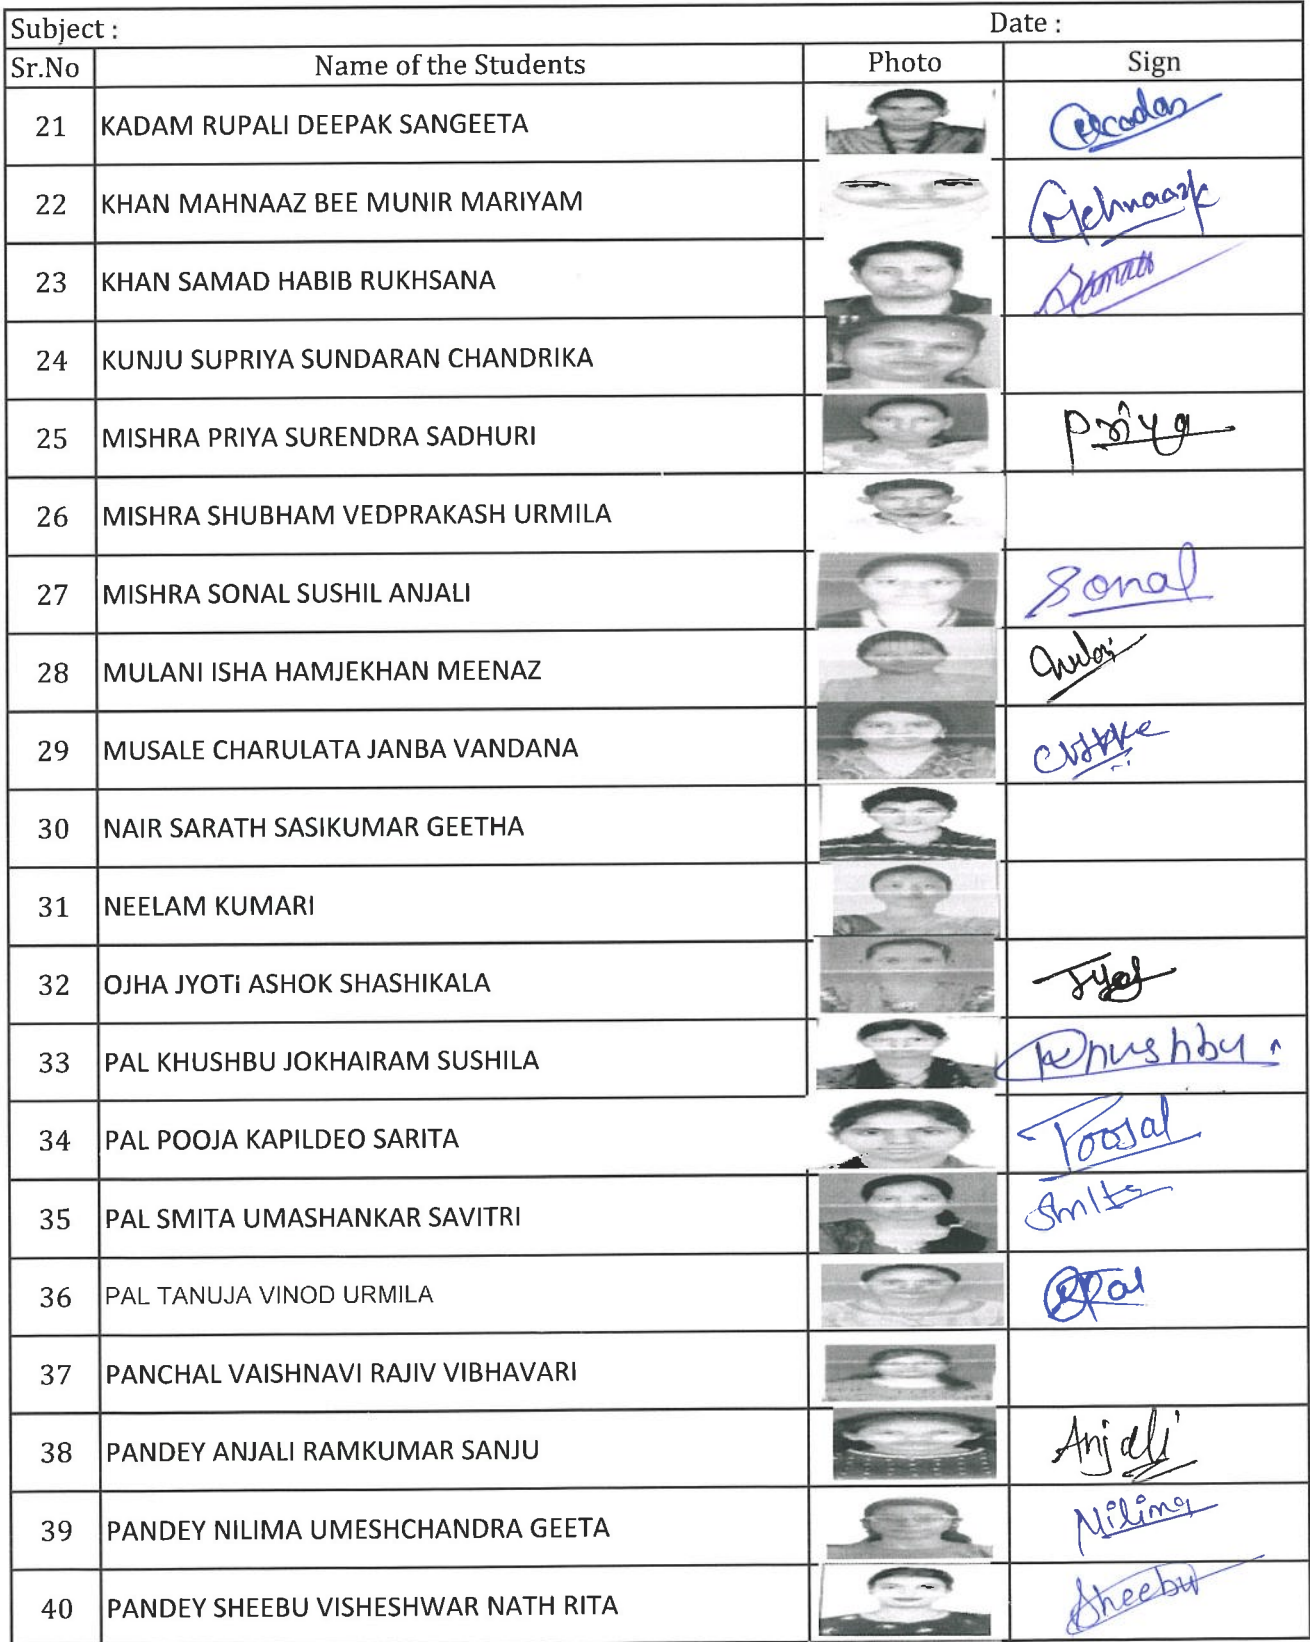 Subject : Date :
Sr.No Name of the Students Photo Sign
21 KADAM RUPALI DEEPAK SANGEETA
22 KHAN MAHNAAZ BEE MUNIR MARIYAM
23 KHAN SAMAD HABIB RUKHSANA
24 KUNJU SUPRIYA SUNDARAN CHANDRIKA
25 MISHRA PRIYA SURENDRA SADHURI Priya
26 MISHRA SHUBHAM VEDPRAKASH URMILA
27 MISHRA SONAL SUSHIL ANJALI Sonal
28 MULANI ISHA HAMJEKHAN MEENAZ
29 MUSALE CHARULATA JANBA VANDANA
30 NAIR SARATH SASIKUMAR GEETHA
31 NEELAM KUMARI
32 OJHA JYOTi ASHOK SHASHIKALA
33 PAL KHUSHBU JOKHAIRAM SUSHILA Khushbu
34 PAL POOJA KAPILDEO SARITA
35 PAL SMITA UMASHANKAR SAVITRI Smita
36 PAL TANUJA VINOD URMILA
37 PANCHAL VAISHNAVI RAJIV VIBHAVARI
38 PANDEY ANJALI RAMKUMAR SANJU Anjali
39 PANDEY NILIMA UMESHCHANDRA GEETA Nilima
40 PANDEY SHEEBU VISHESHWAR NATH RITA Sheebu